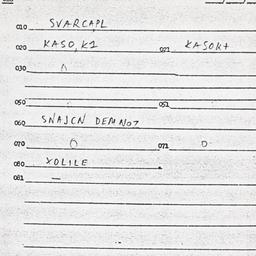 010 SVARCAPL
020 KASO,K1 021 KASOK+
030
050 051
060 SNAJCN DEMNOT
070 0 071 0
080 XOLILE
081 —